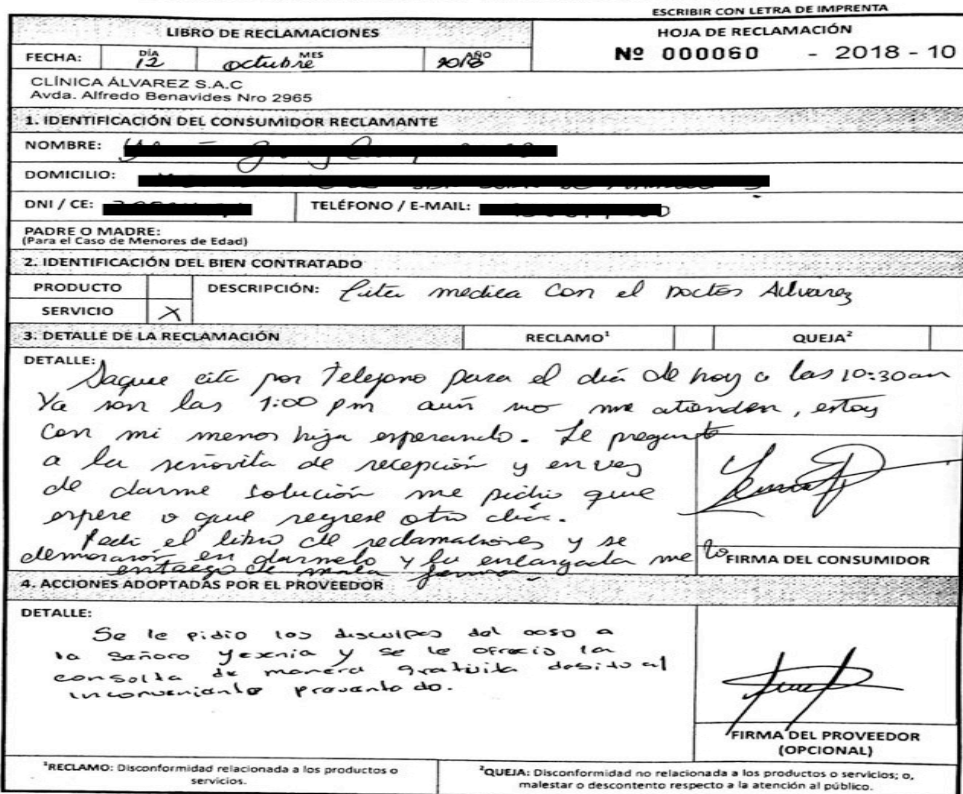 ESCRIBIR CON LETRA DE IMPRENTA
LIBRO DE RECLAMACIONES
HOJA DE RECLAMACIÓN
FECHA: DÍA 12 MES octubre AÑO 2018
Nº 000060 - 2018 - 10
CLÍNICA ÁLVAREZ S.A.C
Avda. Alfredo Benavides Nro 2965
1. IDENTIFICACIÓN DEL CONSUMIDOR RECLAMANTE
NOMBRE:
DOMICILIO:
DNI / CE: TELÉFONO / E-MAIL:
PADRE O MADRE:
(Para el Caso de Menores de Edad)
2. IDENTIFICACIÓN DEL BIEN CONTRATADO
PRODUCTO
DESCRIPCIÓN: medica con el Doctor
SERVICIO X
3. DETALLE DE LA RECLAMACIÓN RECLAMO¹ QUEJA²
DETALLE:
Saque cita por Telefono para el día de hoy a las 10:30am
Ya son las 1:00 pm aún no me atienden, estoy
con mi menor hija esperando. Le pregunte
a la señorita de recepción y en vez
de darme solución me pidio que
espere o que regrese otro día.
Pedi el libro de reclamaciones y se
demoraron en darmelo y la encargada me lo
entrego de mala forma.
FIRMA DEL CONSUMIDOR
4. ACCIONES ADOPTADAS POR EL PROVEEDOR
DETALLE:
Se le pidio las disculpas del caso a
la Señora Yexenia y se le ofrecio la
consulta de manera gratuita debido al
inconveniente
FIRMA DEL PROVEEDOR
(OPCIONAL)
¹RECLAMO: Disconformidad relacionada a los productos o
servicios.
²QUEJA: Disconformidad no relacionada a los productos o servicios; o,
malestar o descontento respecto a la atención al público.